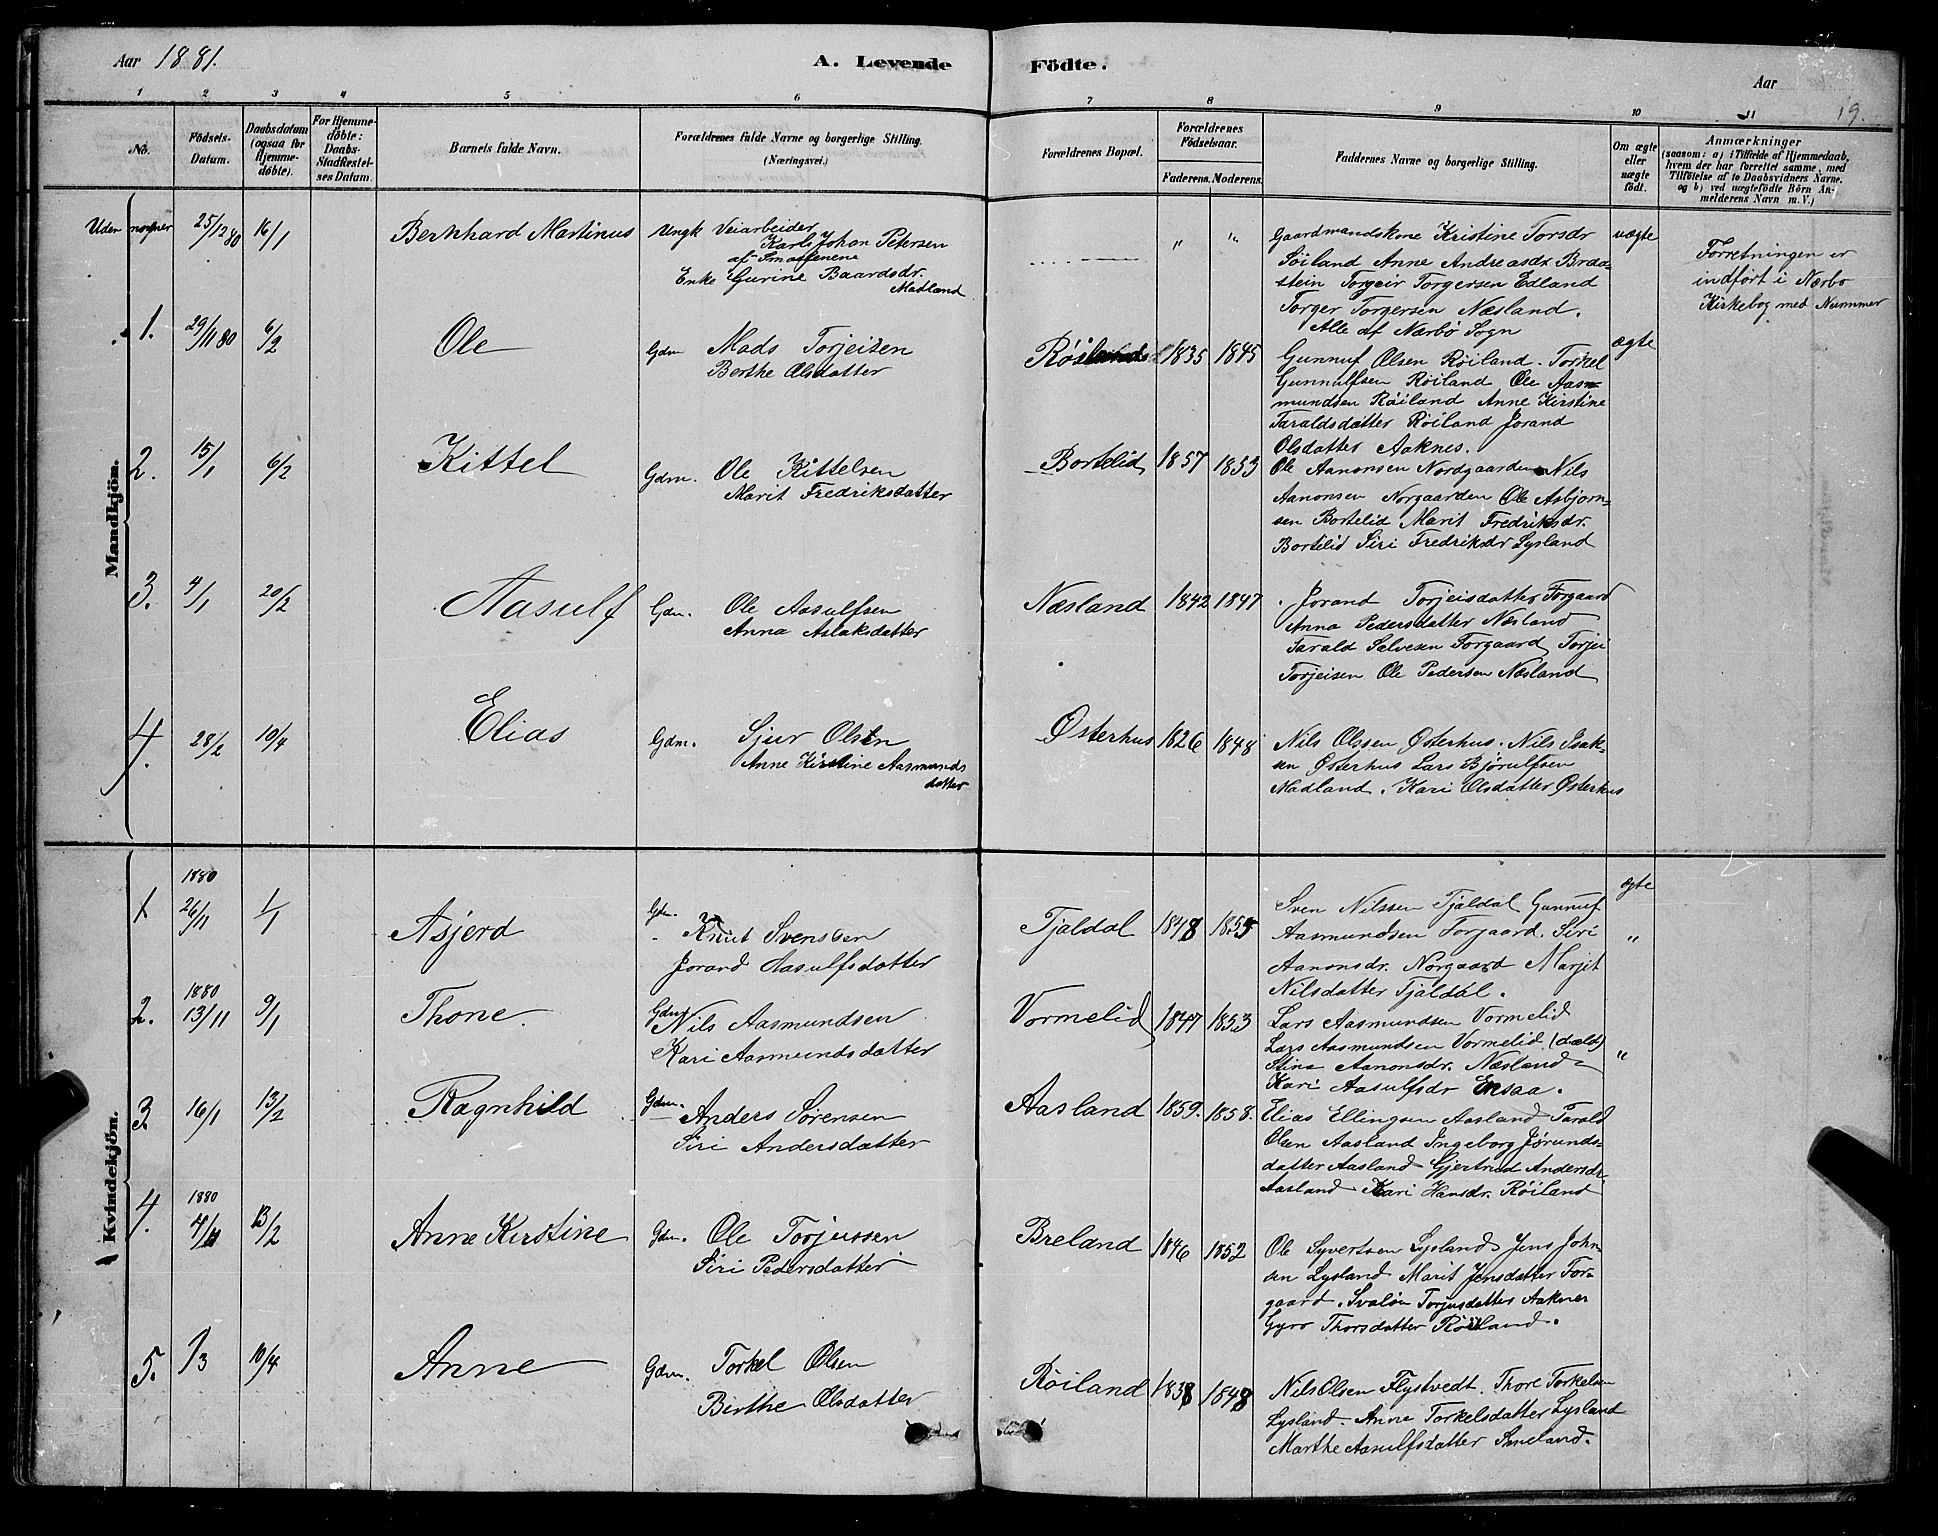 Aar 1881.
A. Levende Födte.
Aar
19.
1 2 3 4 5 6 7 8 9 10 11
No.
Födsels-
Datum.
Daabsdatum
(ogsaa for
Hjemme-
döbte).
For Hjemme-
döbte:
Daabs-
Stadfæstel-
ses Datum.
Barnets fulde Navn.
Forældrenes fulde Navne og borgerlige Stilling.
(Næringsvei.)
Forældrenes Bopæl.
Forældrenes
Födselsaar.
Faderens. Moderens.
Faddernes Navne og borgerlige Stilling.
Om ægte
eller
uægte
födt.
Anmærkninger
(saasom: a) i Tilfælde af Hjemmedaab,
hvem der har forrettet samme, med
Tilföielse af to Daabsvidners Navne.
og b) ved uægtefödte Börn An-
melderens Navn m. V.)
Mandkjön.
Uden nogner 25/12 80 16/1 Bernhard Martinus
Ungk Veiarbeider
Karl Johan Petersen
af Smaalenene
Enke Gurine Baardsdr.
Madland
" "
Gaardmandskone Kristine Torsdr
Söiland Anne Andreasdr Braa-
stein Torgeir Torgersen Edland
Torger Torgersen Næsland.
Alle af Nærbö Sogn
uægte
Forretningen er
indfört i Nærbo
Kirkebog med Nummer
1. 29/11 80 6/2 Ole
Gdm Mads Torjeisen
Berthe Olsdatter
1835 1845
Gunnuf Olsen Röiland. Torkel
Gunnulfsen Röiland Ole Aas-
mundsen Röiland Anne Kirstine
Taraldsdatter Röiland Jorand
Olsdatter Aaknes.
ægte
2. 15/1 6/2 Kittel
Gdm. Ole Kittelsen
Marit Fredriksdatter
Bortelid 1857 1853
Ole Aanonsen Nordgaarden Nils
Aanonsen Norgaarden Ole Asbjørn-
sen Bortelid Marit Fredriksdr.
Bortelid Siri Fredriksdr Lysland
3. 4/1 20/2 Aasulf
Gdm. Ole Aasulfsen
Anna Aslaksdatter
Næsland 1842 1847
Jorand Torjeisdatter Forgaard
Anna Pedersdatter Næsland
Tarald Salvesen Forgaard Torjei
Torjeisen Ole Pedersen Næsland
4. 28/2 10/4 Elias
Gdm. Sjur Olsen
Anne Kirstine Aasmunds
datter
Østerhus 1826 1848
Nils Olssen Østerhus. Nils Isak-
sen Østerhus Lars Bjørulfsen
Madland. Kari Olsdatter Østerhus
Kvindekjön.
1 1880 26/11 1/1 Asjerd
Gdm. Knut Svensen
Jorand Aasulfsdatter
Tjaldal 1848 1855
Sven Nilssen Tjaldal Gunnuf
Aasmundsen Forgaard. Siri
Aanonsdr. Norgaard Marjit
Nilsdatter Tjaldal.
ægte
"
2. 1880 13/11 9/1 Thone.
Gdm Nils Aasmundsen
Kari Aasmundsdatter
Vormelid 1847 1853
Lars Aasmundsen Vormelid
Lars Aasmundsen Vormelid (dald)
Stina Aanonsdr. Næsland
Kari Aasulfsdr Ensaa.
"
3. 16/1 13/2 Ragnhild
Gdm. Anders Sörensen
Siri Andersdatter
Aasland 1859. 1858.
Elias Ellingsen Aasland Tarald
Olsen Aasland Ingeborg Jörunds-
datter Aasland Gjertrud Andersdr
Aasland Kari Hansdr. Röiland
4. 1880 4/11 13/2 Anne Kirstine
Gdm. Ole Torjussen
Siri Pedersdatter
Breland 1846 1852
Ole Syvertsen Lysland Jens John-
sen Lysland Marit Jensdatter For-
gaard. Svaløu Torjusdatter Aaknes
Gyro Thorsdatter Röiland.
5. 1/3 10/4 Anne
Gdm. Torkel Olsen
Birthe Olsdatter
Röiland 1838 1848
Nils Olsen Flystvedt. Thore Torkelsen
Lysland. Anne Torkelsdatter Lysland
Marthe Aasulfsdatter Smeland.